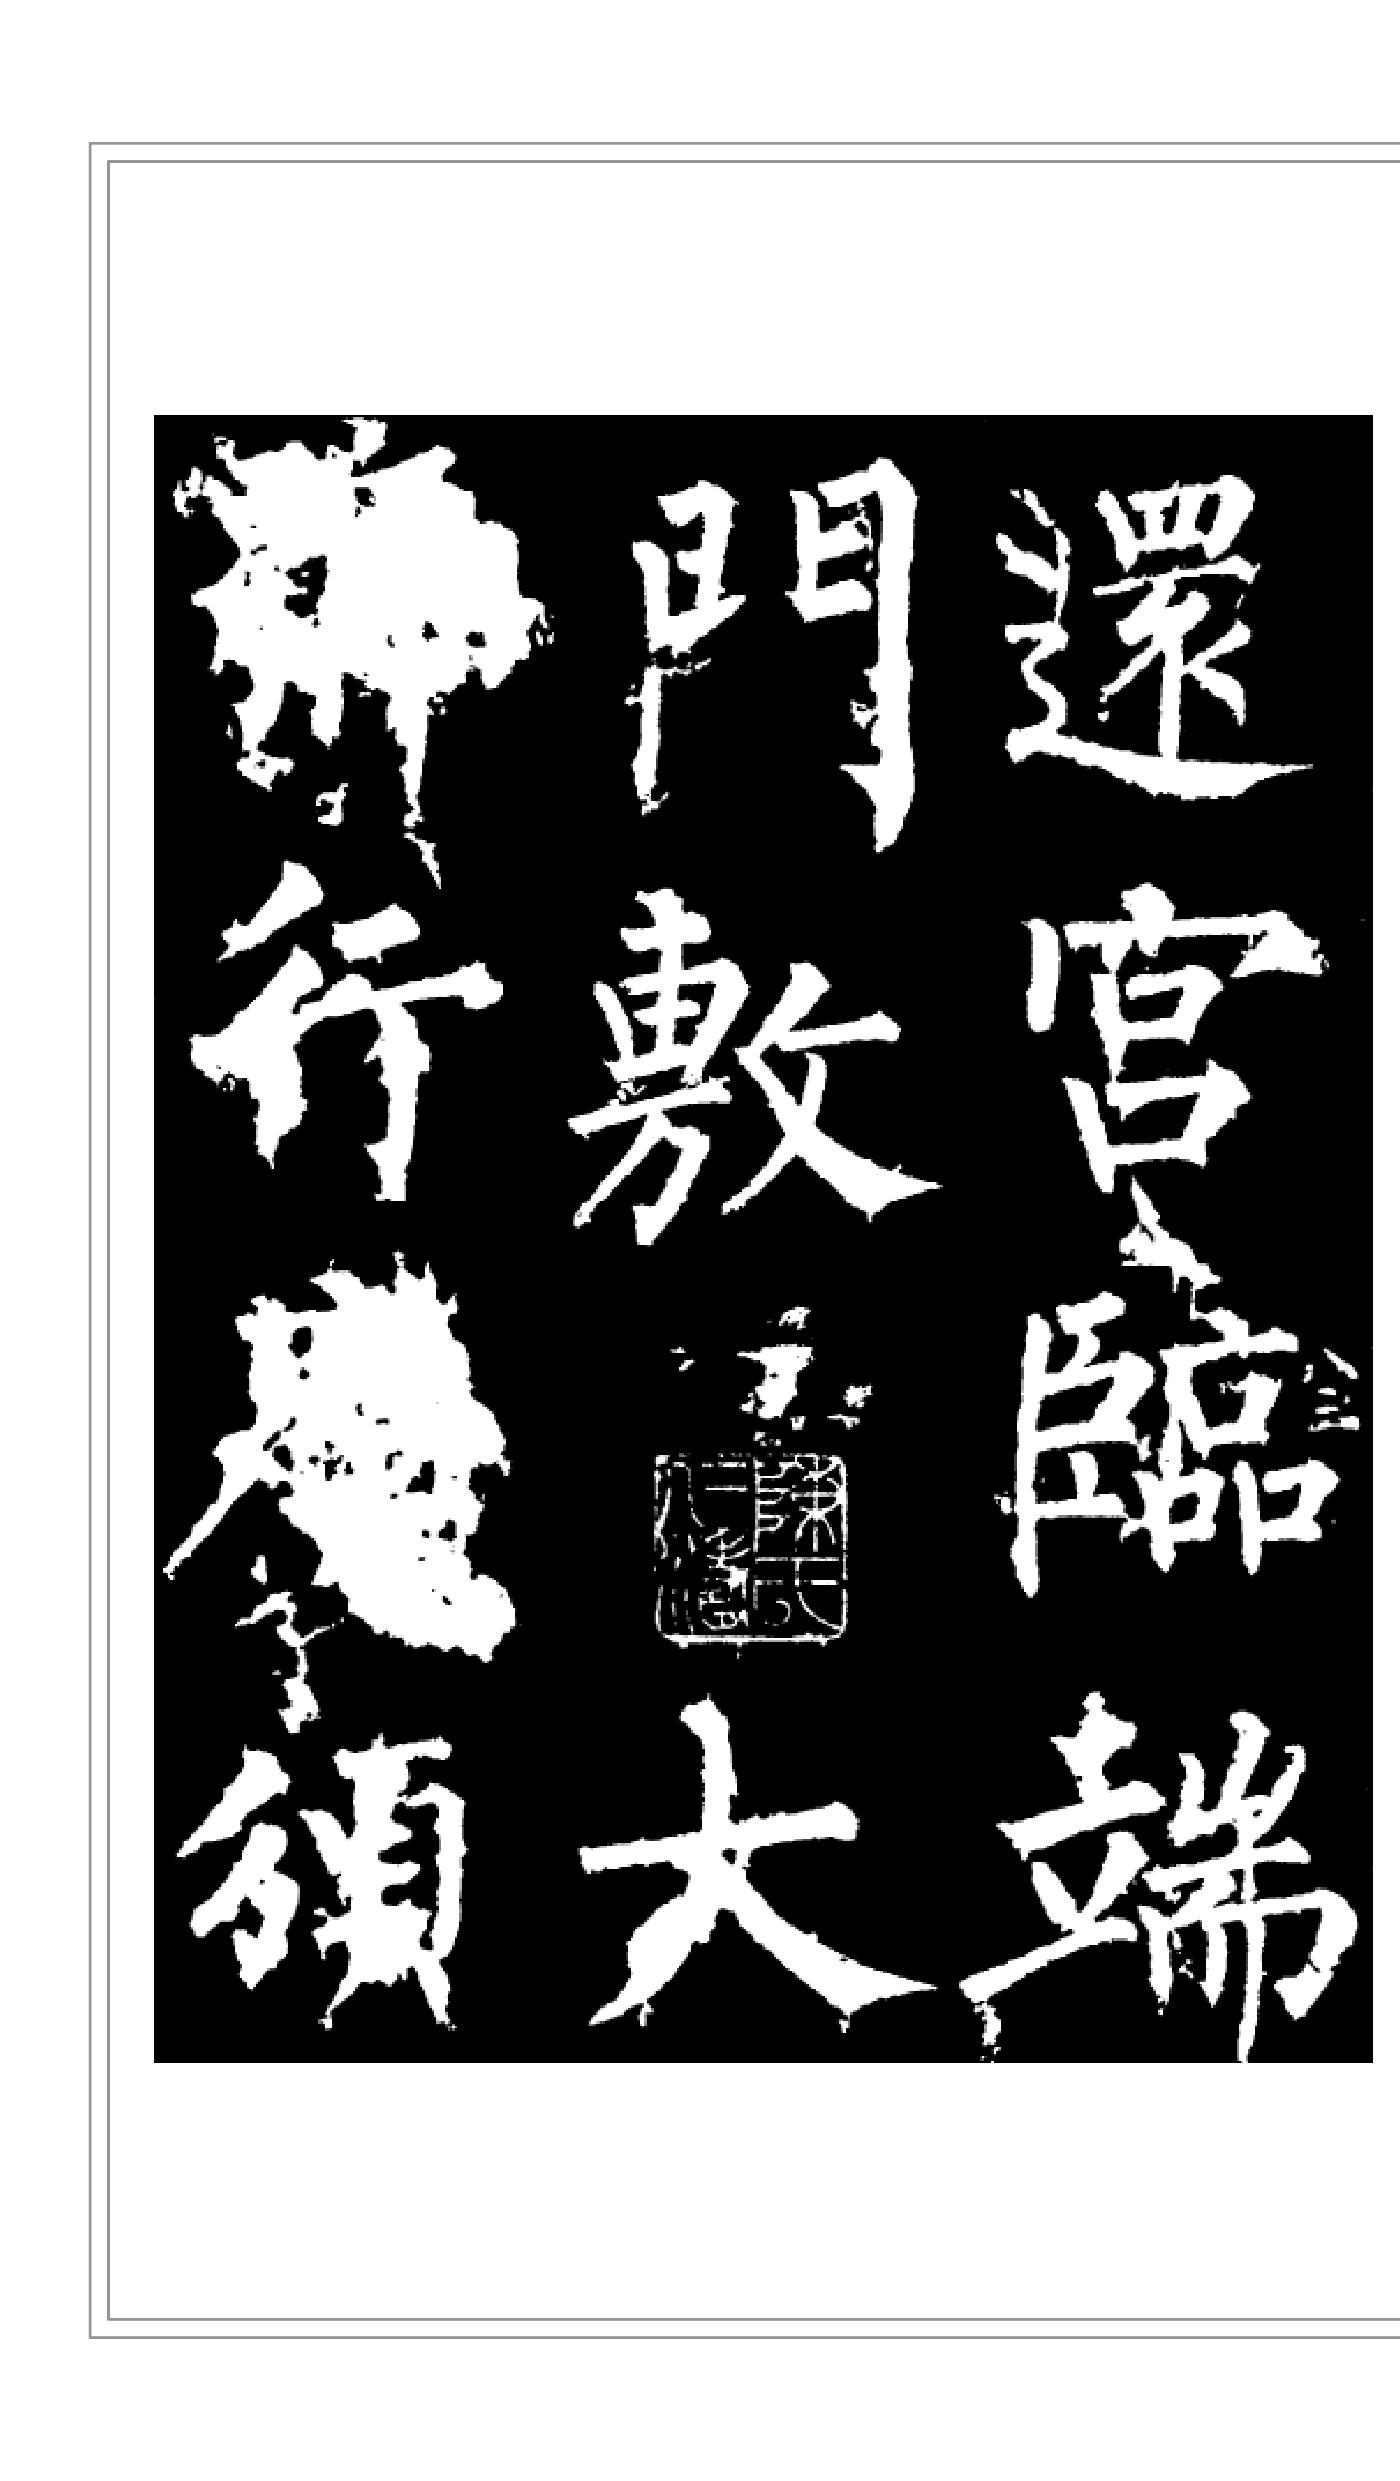 還宮臨端
門敷大
行慶領